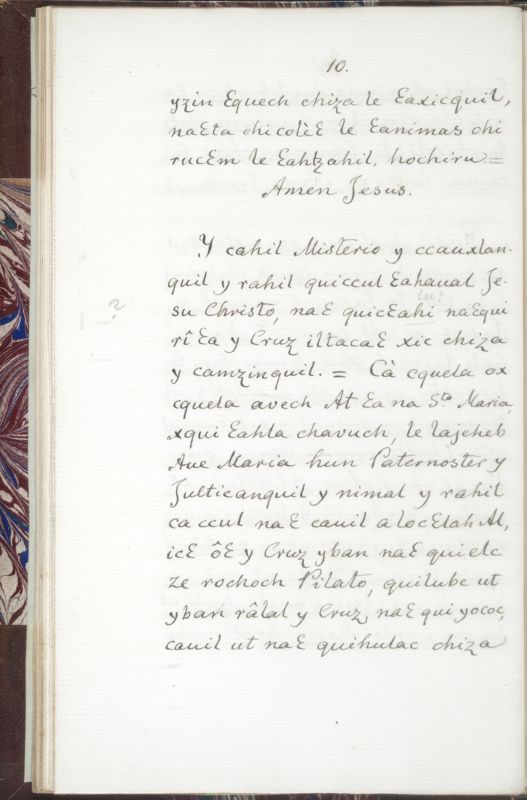 10.
yꜩin Ɛquech chiza le Ɛaxicquil,
naƐta chi colèƐ le Ɛanimas chi
rucƐm le Ɛahtzahil, hochiru =
Amen Jesus.
Y cahil Misterio y ccauxlan-
quil y rahil quiccul Ɛahaual Je-
su Christo, naƐ quicƐahi naƐqui
rîƐa y Cruz iltacaƐ xic chiza
y camzinquil. = Cà cquela ox
cquela avech At Ɛa na Sta Maria,
xqui Ɛahla chavuch, le lajeheb
Aue Maria hun Paternoster y
Julticanquil y nimal y rahil
ca ccul naƐ cauil a locƐlah Al,
icƐ ôƐ y Cruz yban naƐ qui elc
ze rochoch Pilato, quilubc ut
yban râlal y Cruz, naƐ qui yococ,
cauil ut naƐ quihulac chiza
?